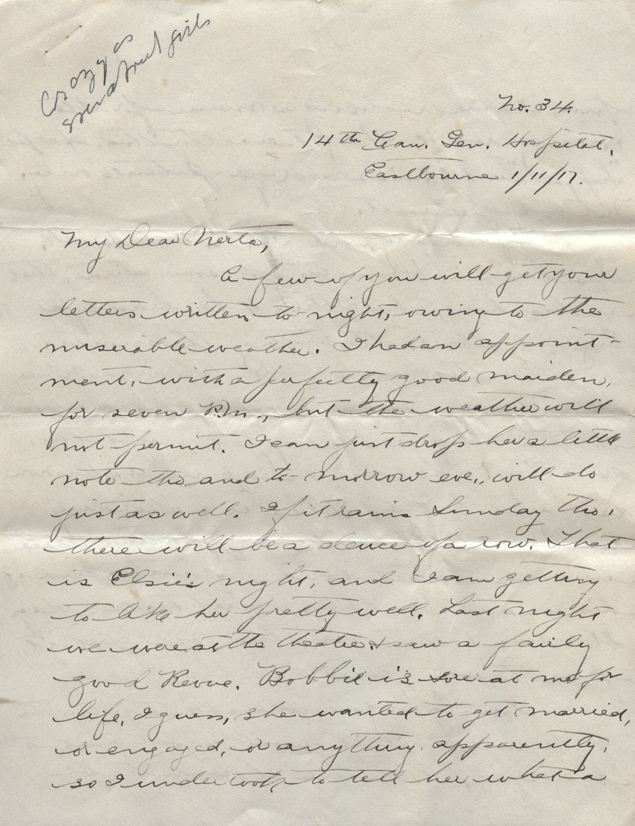 Crazy as
ever about girls
No. 34.
14th Can. Gen. Hospital,
Eastbourne 1/11/17.
My Dear Nerta,
A few of you will get your
letters written to night, owing to the
miserable weather. I had an appoint-
ment, with a perfectly good maiden,
for seven P.m., but the weather will
not permit. I can just drop her a little
note tho and to-morrow eve., will do
just as well. If it rains Sunday tho,
there will be a deuce of a row. That
is Elsie's night, and I am getting
to like her pretty well. Last night
we were at the theatre & saw a fairly
good Revue. Bobbie is sore at me for
life, I guess, she wanted to get married,
or engaged, or anything apparently,
so I undertook to tell her what a